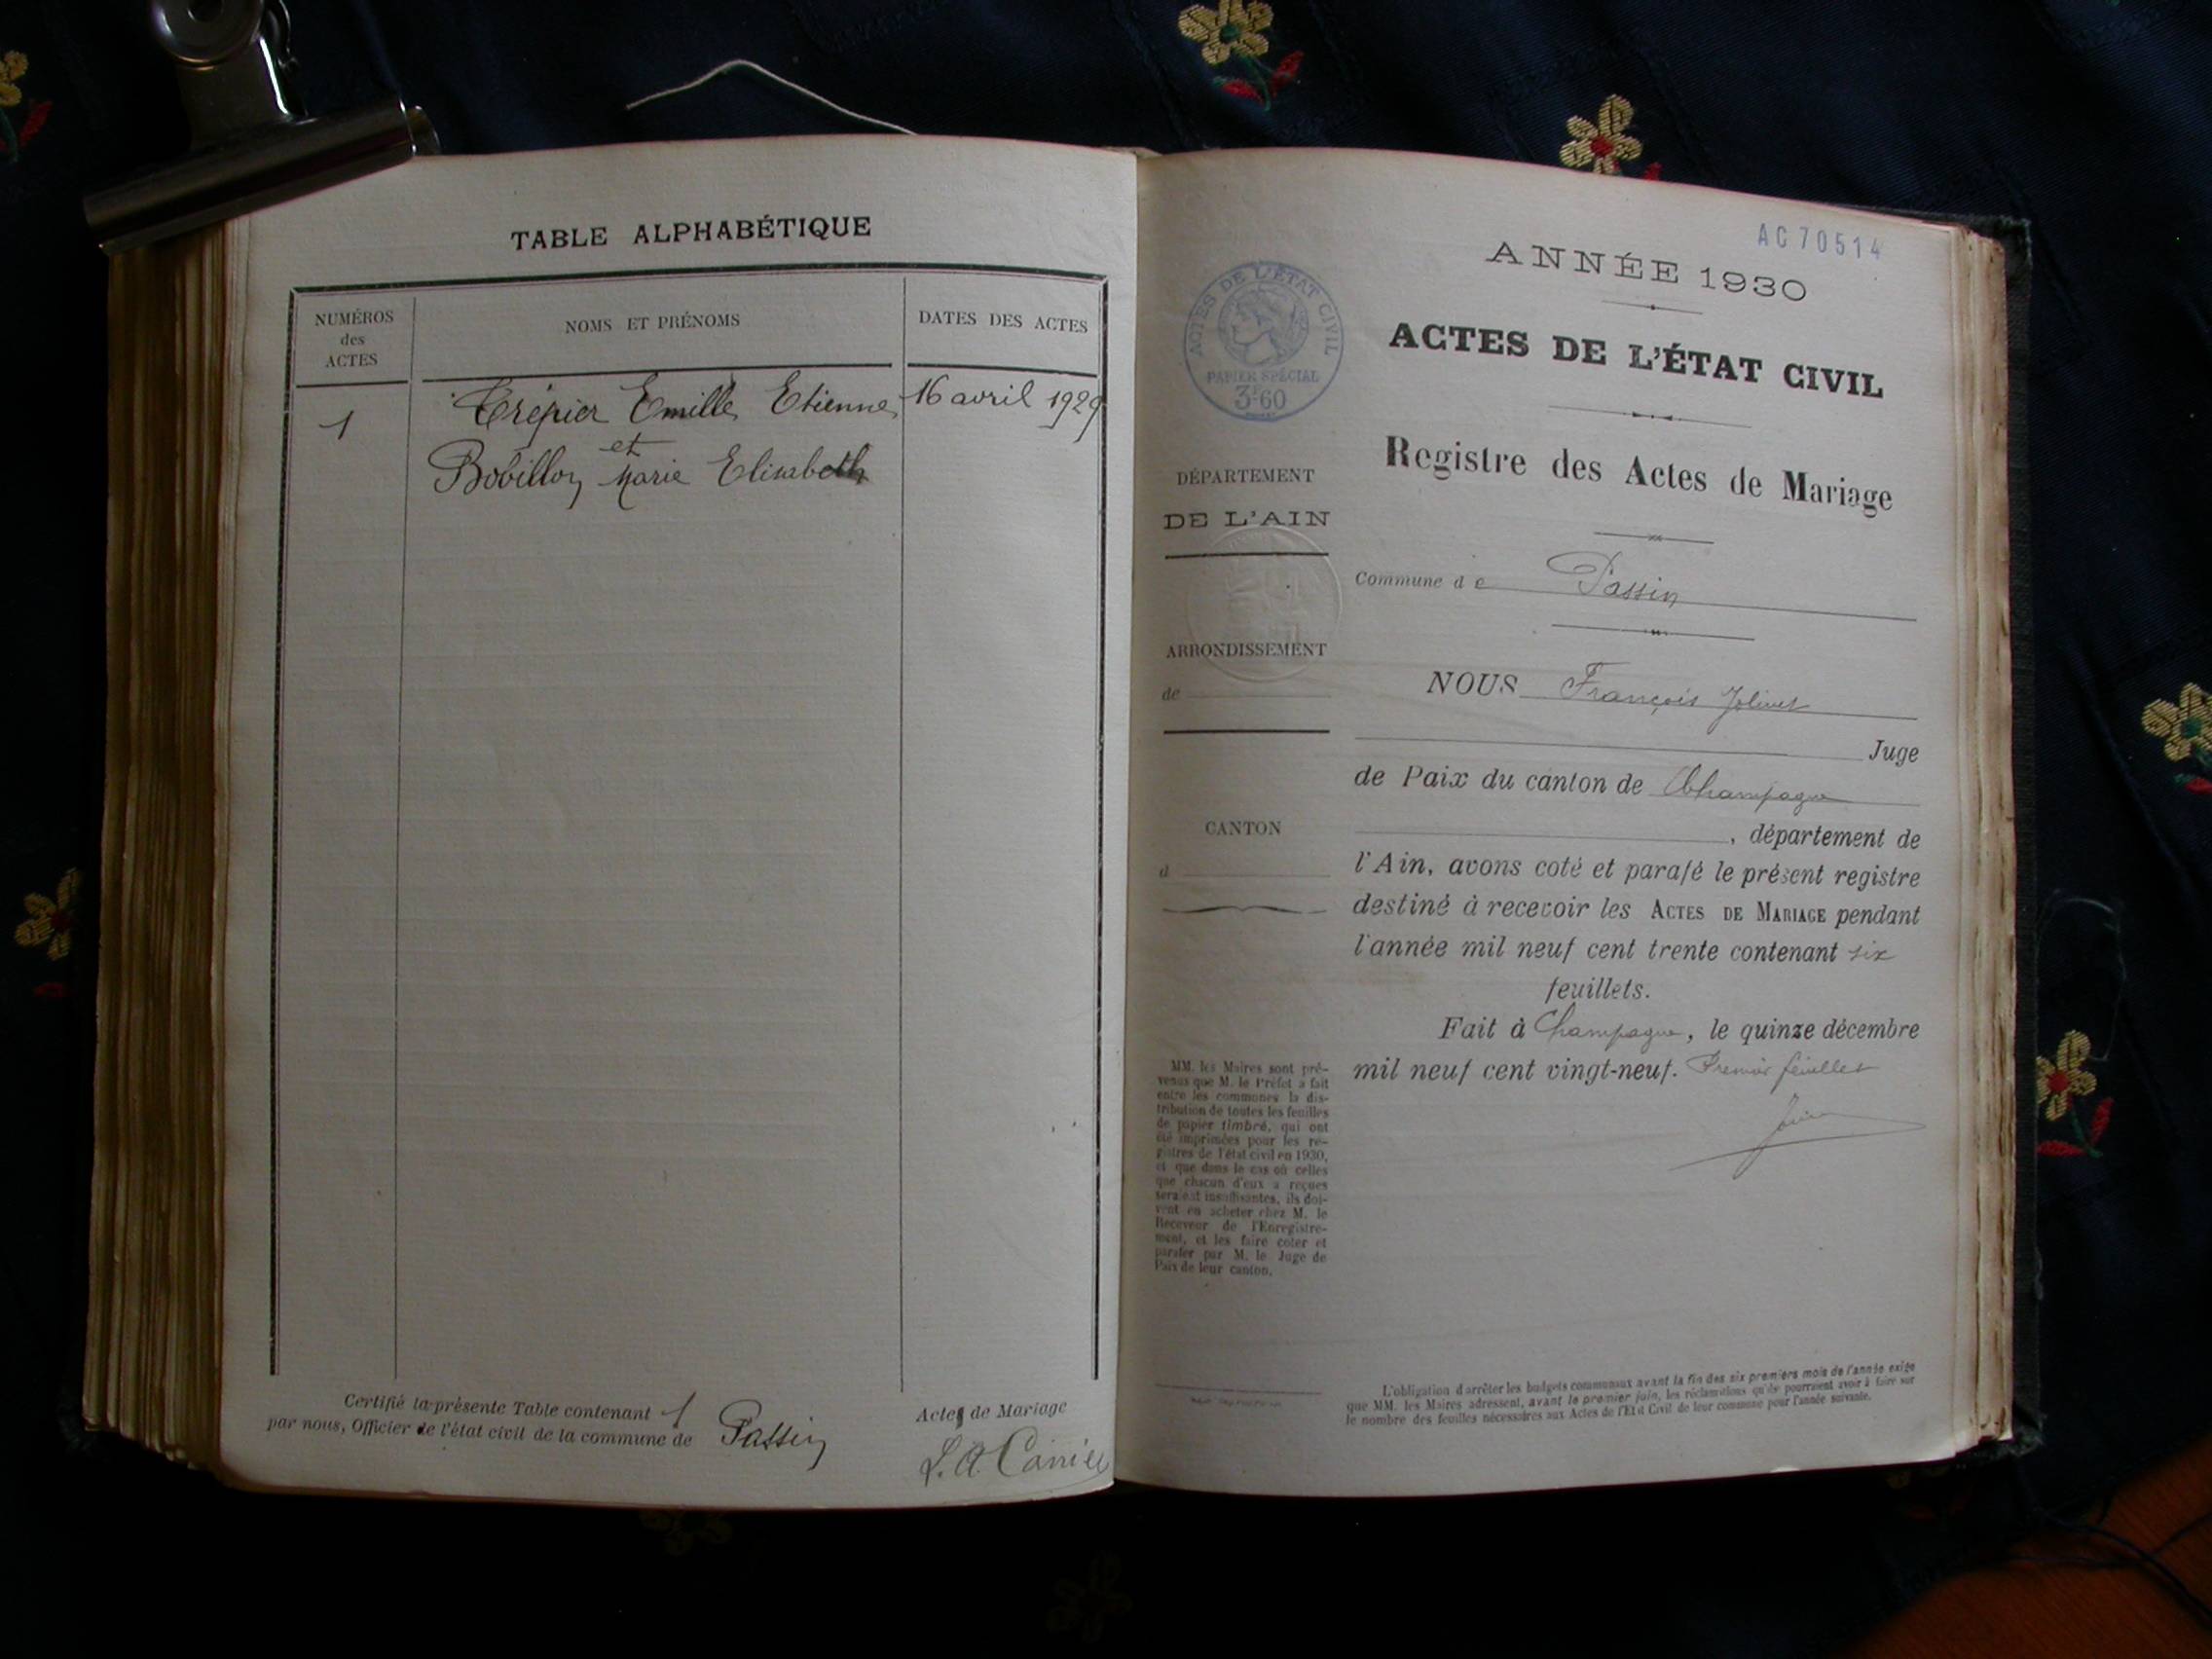 TABLE ALPHABÉTIQUE
NUMÉROS
des
ACTES
NOMS ET PRÉNOMS
DATES DES ACTES
1
Trépier Emille Etienne
16 avril 1929
et
Bobillon Marie Elisabeth
Certifié la présente Table contenant 1
Actes de Mariage
par nous, Officier de l'état civil de la commune de Passin
AC 70514
ANNÉE 1930
ACTES DE L'ÉTAT CIVIL
PAPIER SPÉCIAL
3F60
ACTES DE L'ÉTAT CIVIL
Registre des Actes de Mariage
DÉPARTEMENT
DE L'AIN
Commune de Passin
ARRONDISSEMENT
de
NOUS François Jolivet
Juge
de Paix du canton de Champagne
CANTON
d
, département de
l'Ain, avons coté et parafé le présent registre
destiné à recevoir les ACTES DE MARIAGE pendant
l'année mil neuf cent trente contenant six
feuillets.
Fait à Champagne, le quinze décembre
mil neuf cent vingt-neuf. Premier feuillet
MM. les Maires sont pré-
venus que M. le Préfet a fait
entre les communes la dis-
tribution de toutes les feuilles
de papier timbré, qui ont
été imprimées pour les re-
gistres de l'état civil en 1930,
et que dans le cas où celles
que chacun d'eux a reçues
seraient insuffisantes, ils doi-
vent en acheter chez M. le
Receveur de l'Enregistre-
ment, et les faire coter et
parafer par M. le Juge de
Paix de leur canton.
L'obligation d'arrêter les budgets communaux avant la fin des six premiers mois de l'année exige
que MM. les Maires adressent, avant le premier juin, les réclamations qu'ils pourraient avoir à faire sur
le nombre des feuilles nécessaires aux Actes de l'Etat Civil de leur commune pour l'année suivante.